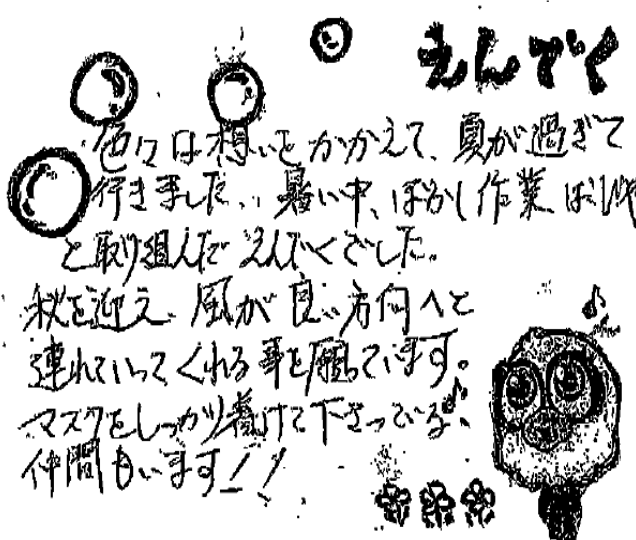 えんでく
色々な想いをかかえて、夏が過ぎて
行きました、、暑い中、ぼかし作業
と取り組んだえんでくでした。
秋を迎え、風が良い方向へと
連れていってくれる事を願っています。
マスクをしっかり着けて下さっている、
仲間もいます!!